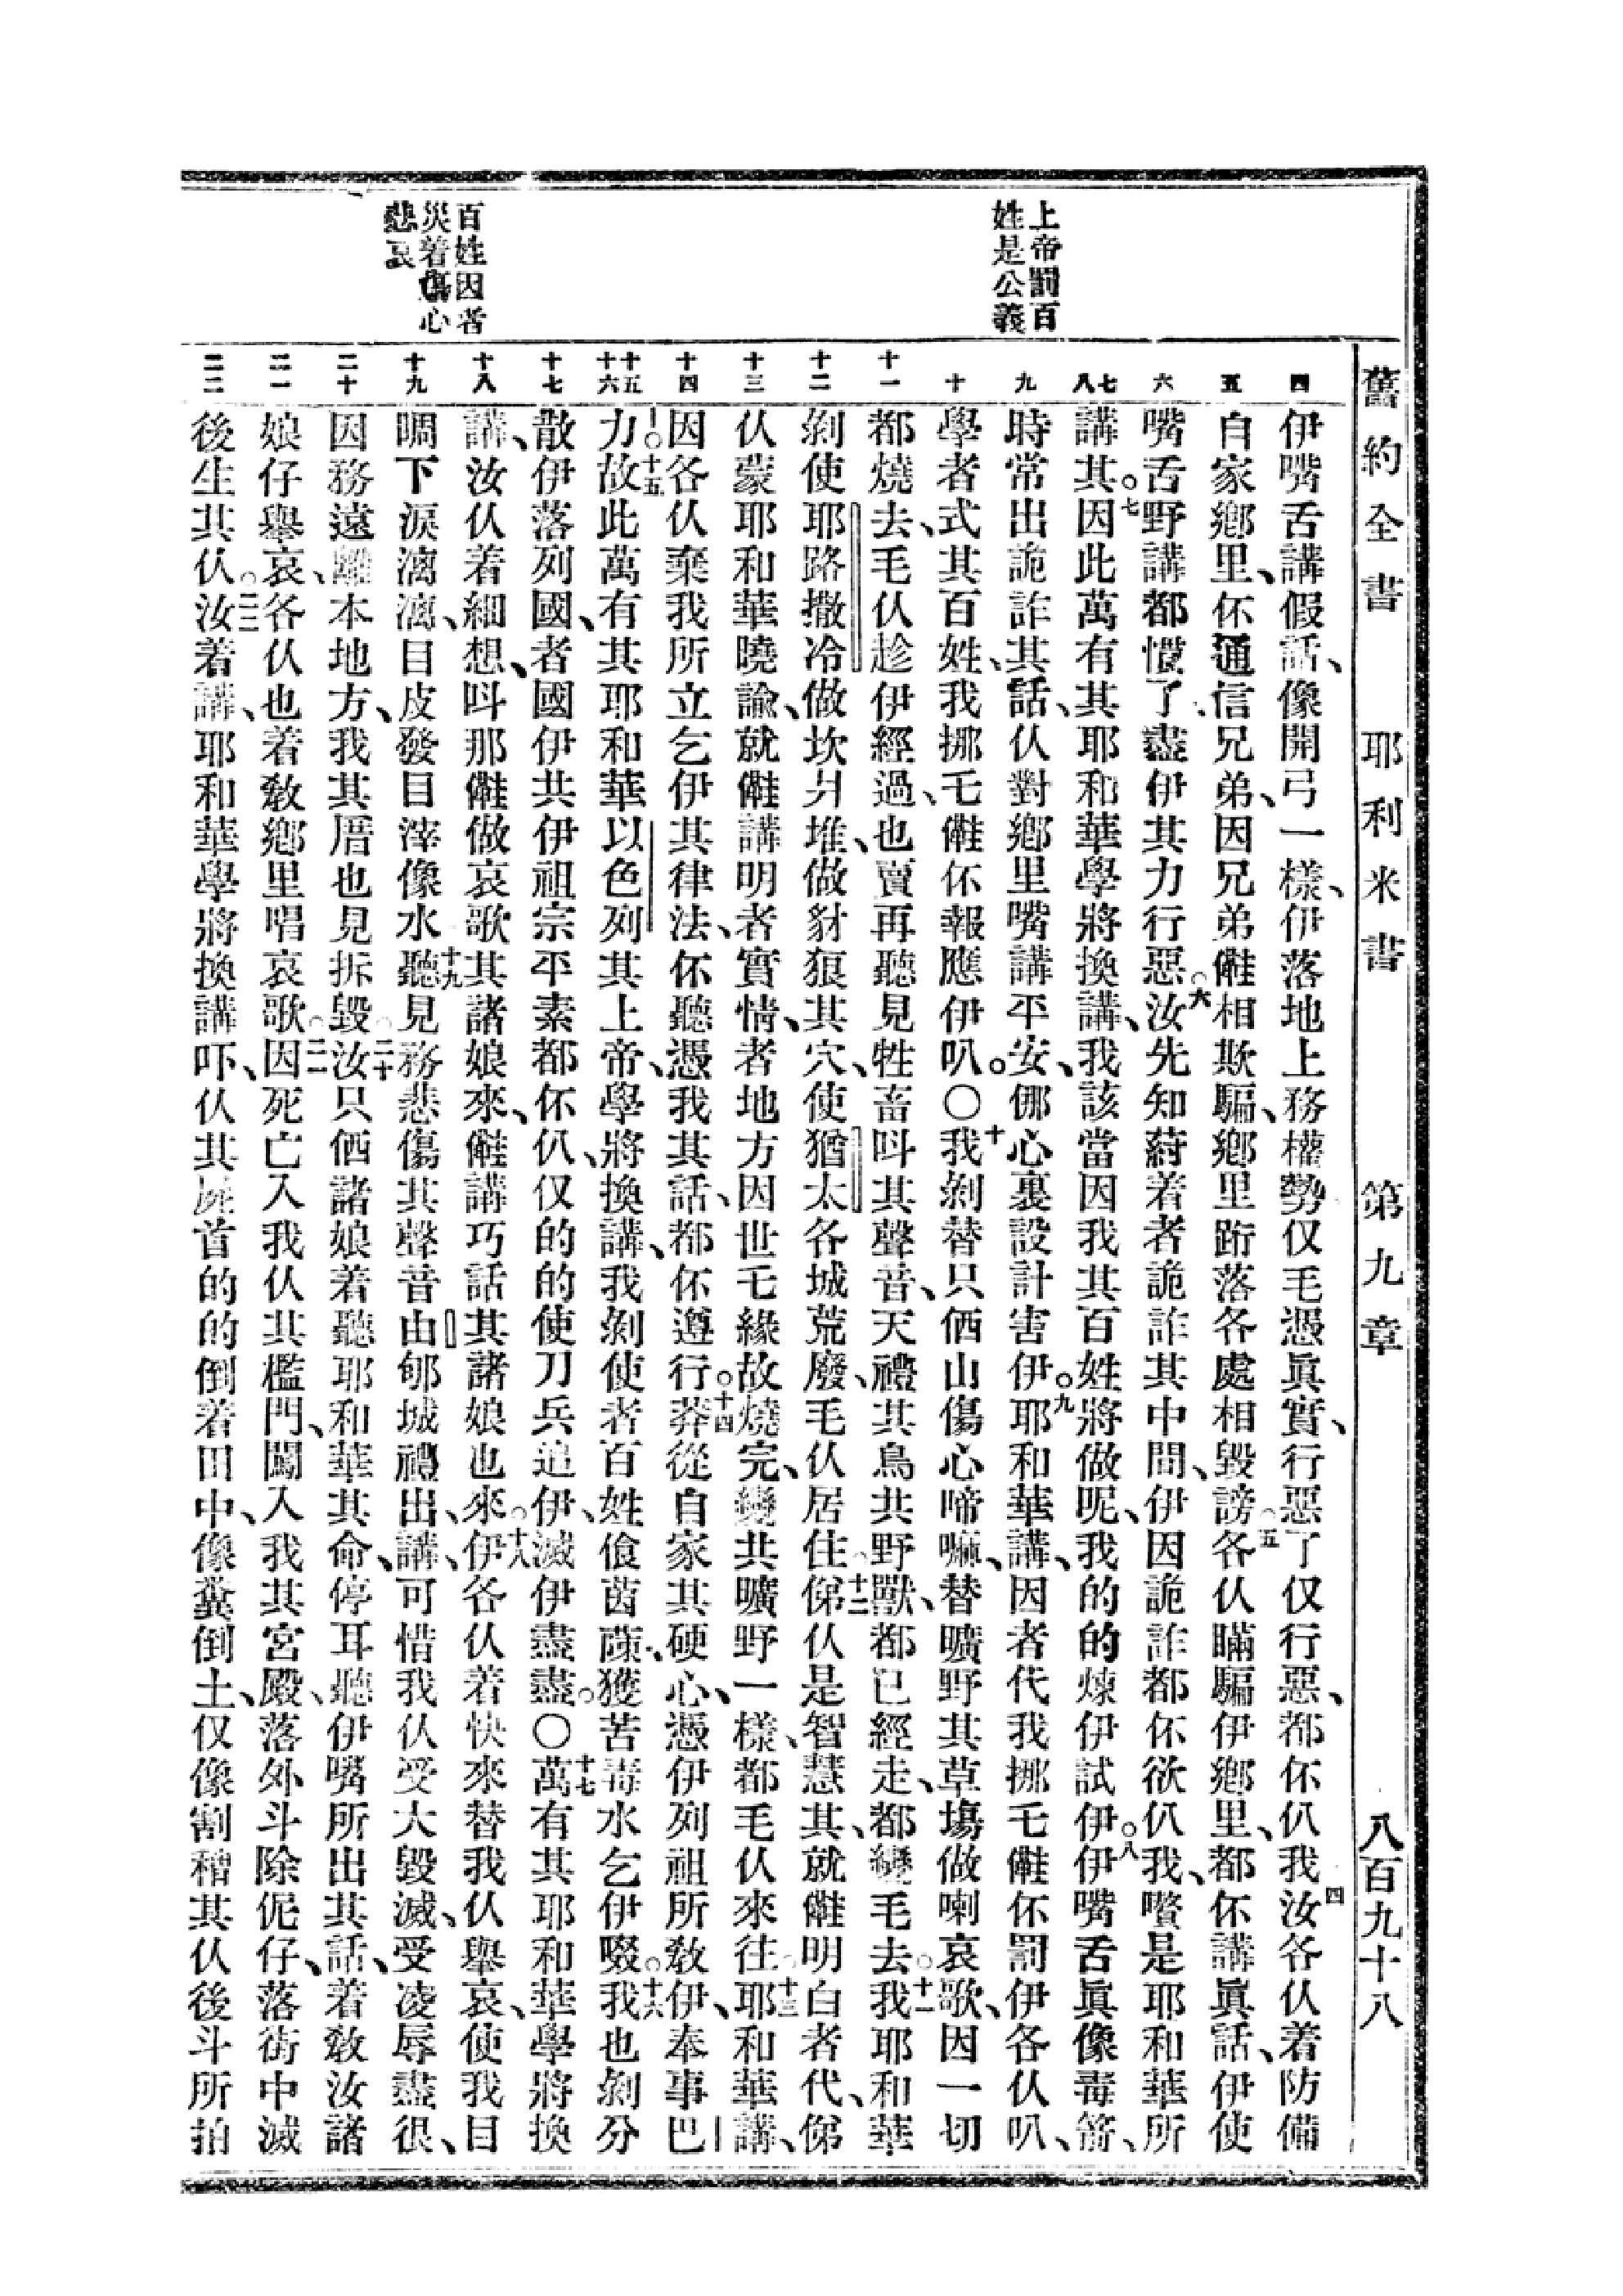 舊約全書 耶利米書 第九章 八百九十八
上帝罰百
姓是公義
百姓因者
災着傷心
悲哀
四
五
六
七
八
九
十
十一
十二
十三
十四
十五
十六
十七
十八
十九
二十
二一
二二
伊嘴舌講假話、像開弓一樣、伊落地上務權勢仅毛憑眞實、行惡了仅行惡、都伓仈我四汝各仈着防備
自家鄉里、伓通信兄弟、因兄弟 相欺騙、鄉里跡落各處相毀謗。五各仈瞞騙伊鄉里、都伓講眞話、伊使
嘴舌野講都慣了、盡伊其力行惡。六汝先知蒔着者詭詐其中間、伊因詭詐都伓欲仈我、賢是耶和華所
講其。七因此萬有其耶和華學將換講、我該當因我其百姓將做呢、我的的煉伊試伊。八伊嘴舌眞像毒箭、
時常出詭詐其話、仈對鄉里嘴講平安、 心裏設計害伊。九耶和華講、因者代我挪乇 伓罰伊各仈叭、
學者式其百姓、我挪乇 伓報應伊叭。〇十我剝替只 山傷心啼嘛、替曠野其草塲做喇哀歌、因一切
都燒去、毛仈趁伊經過、也賣再聽見牲畜呌其聲音、天禮其鳥共野獸、都已經走、都變毛去。十一我耶和華
剝使耶路撒冷做坎爿堆、做豺狼其穴、使猶太各城荒廢、毛仈居住。十二俤仈是智慧其、就 明白者代、俤
仈蒙耶和華曉諭、就 講明者實情、者地方因世乇緣故燒完、變共曠野一樣、都毛仈來往。十三耶和華講、
因各仈棄我所立乞伊其律法、伓聽憑我其話、都伓遵行。十四莽從自家其硬心、憑伊列祖所敎伊、奉事巴
力。十五故此萬有其耶和華以色列其上帝、學將換講、我剝使者百姓、飱茵蔯、獲苦毒水乞伊啜。十六我也剝分
散伊落列國、者國伊共伊祖宗平素都伓仈、仅的的使刀兵追伊、滅伊盡盡。〇十七萬有其耶和華學將換
講、汝仈着細想、呌那 做哀歌其諸娘來、 講巧話其諸娘也來。十八伊各仈着快來替我仈舉哀、使我目
睭下淚漓漓、目皮發目滓像水。十九聽見務悲傷其聲音由郇城禮出、講、可惜我仈受大毀滅、受凌辱盡很、
因務遠離本地方、我其厝也見拆毀。二十汝只 諸娘着聽耶和華其命、停耳聽伊嘴所出其話、着敎汝諸
娘仔舉哀、各仈也着敎鄉里唱哀歌。二一因死亡入我仈其檻門、闖入我其宮殿、落外斗除伲仔、落街中滅
後生其仈。二二汝着講、耶和華學將換講吓、仈其屍首的的倒着田中、像糞倒土、仅像割稽其仈後斗所拍